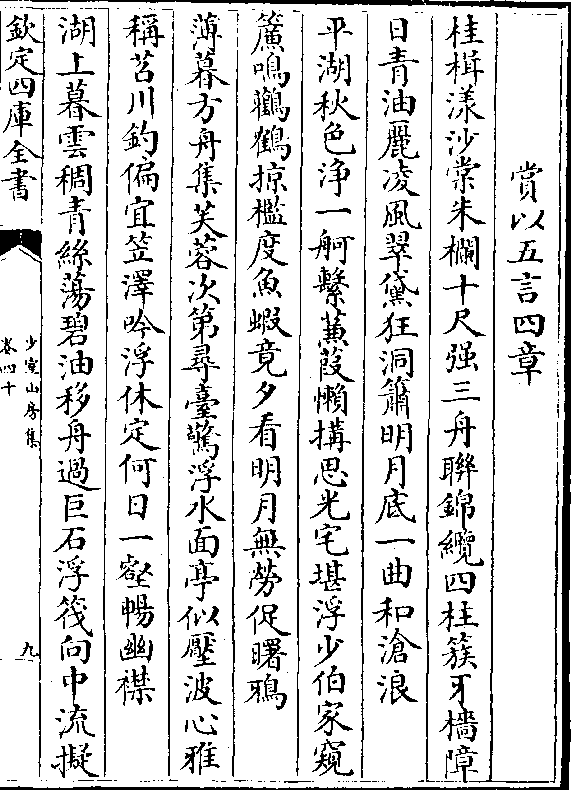 賞以五言四章
桂楫漾沙棠朱欄十尺强三舟聯錦纜四柱簇牙檣障
日青油麗凌風翠黛狂洞簫明月底一曲和滄浪
平湖秋色浄一舸繫蒹葭懶搆思光宅堪浮少伯家窺
簾鳴鸛鶴掠檻度魚蝦竟夕看明月無勞促曙鴉
薄暮方舟集芙蓉次第尋臺驚浮水面亭似壓波心雅
稱苕川釣偏宜笠澤吟浮休定何日一壑暢幽襟
湖上暮雲稠青絲蕩碧油移舟過巨石浮筏向中流擬
欽定四庫全書
少室山房集
卷四十
九